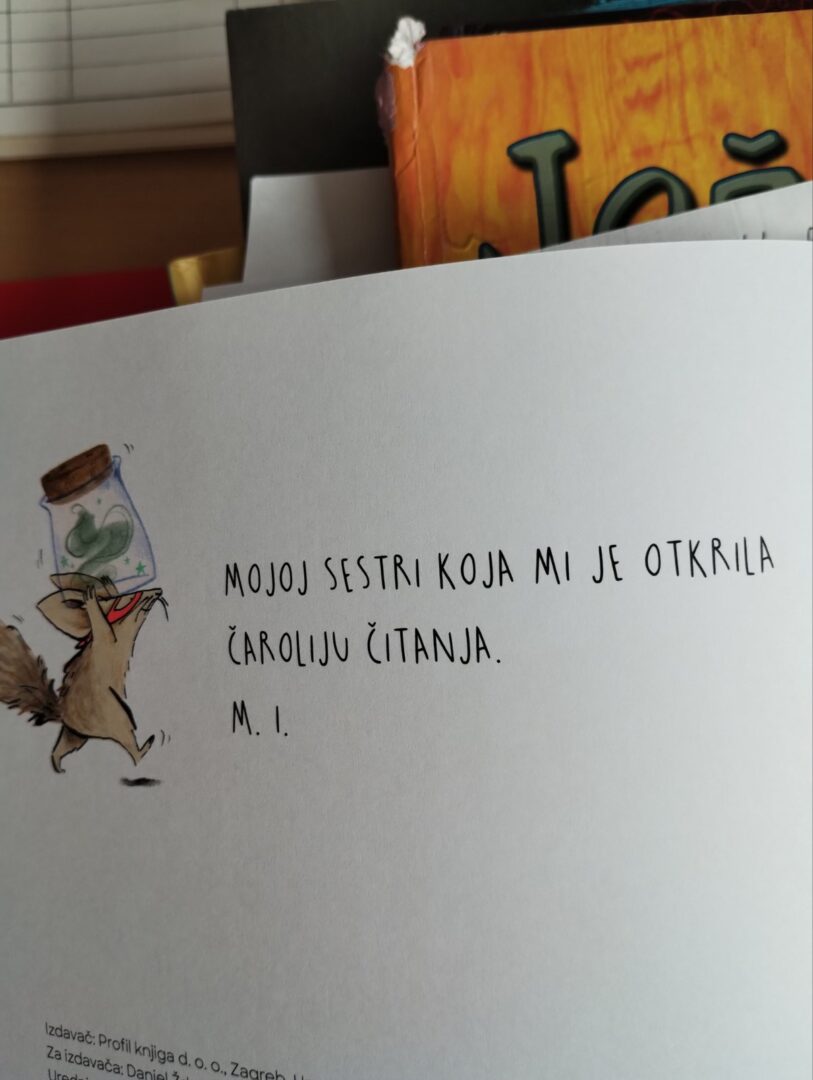 Još
MOJOJ SESTRI KOJA MI JE OTKRILA
ČAROLIJU ČITANJA.
M. I.
Izdavač: Profil knjiga d. o. o., Zagreb,
Za izdavača: Daniel